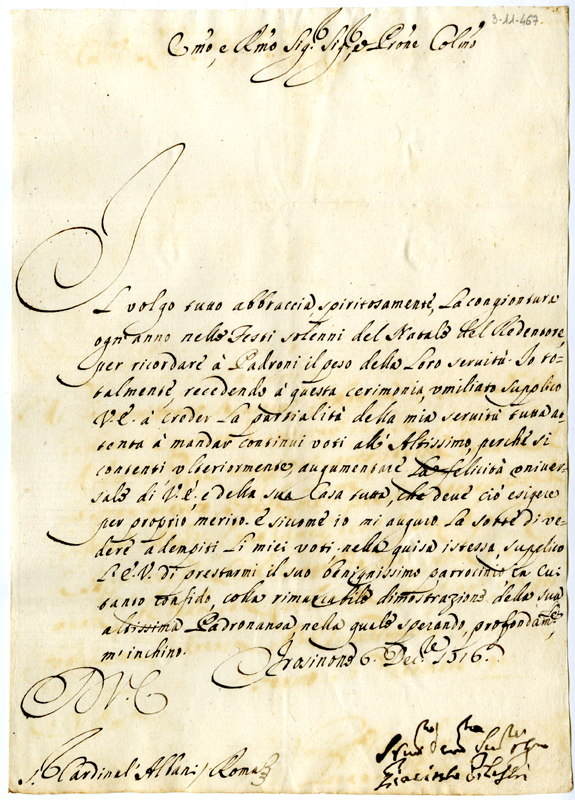 3-11-467.
Emo, e Rmo Sig.r Sig.r, e Prone Colmo
Il volgo tutto abbraccia spiritosamente, La congiontura
ogn'anno nelle Festi solenni del Natale del Redentore,
per ricordare à Padroni il peso della Loro seruitù. Io to-
talmente, recedendo à questa cerimonia, umiliato supplico
V.E. à creder La partialità della mia seruitù tutta at-
tenta à mandar continui voti all'Altissimo, perche si
contenti ulteriormente, augumentare la felicità uniuer-
sale di V.E. e della sua Casa tutta, che deue ciò esigere
per proprio merito. E sicome io mi auguro La sorte di ve-
dere adempiti Li miei voti, nella guisa istessa, supplico
L'E.V. di prestarmi il suo benignissimo patrocinio in cui
tanto confido, colla rimarcabile dimostrazione della sua
altissima Padronanza nella quale sperando, profondam.te
m'inchino. Frosinone 6. Dec.re 1716.
D V.E.
S.r Cardinal' Albani / Roma
Giacinto